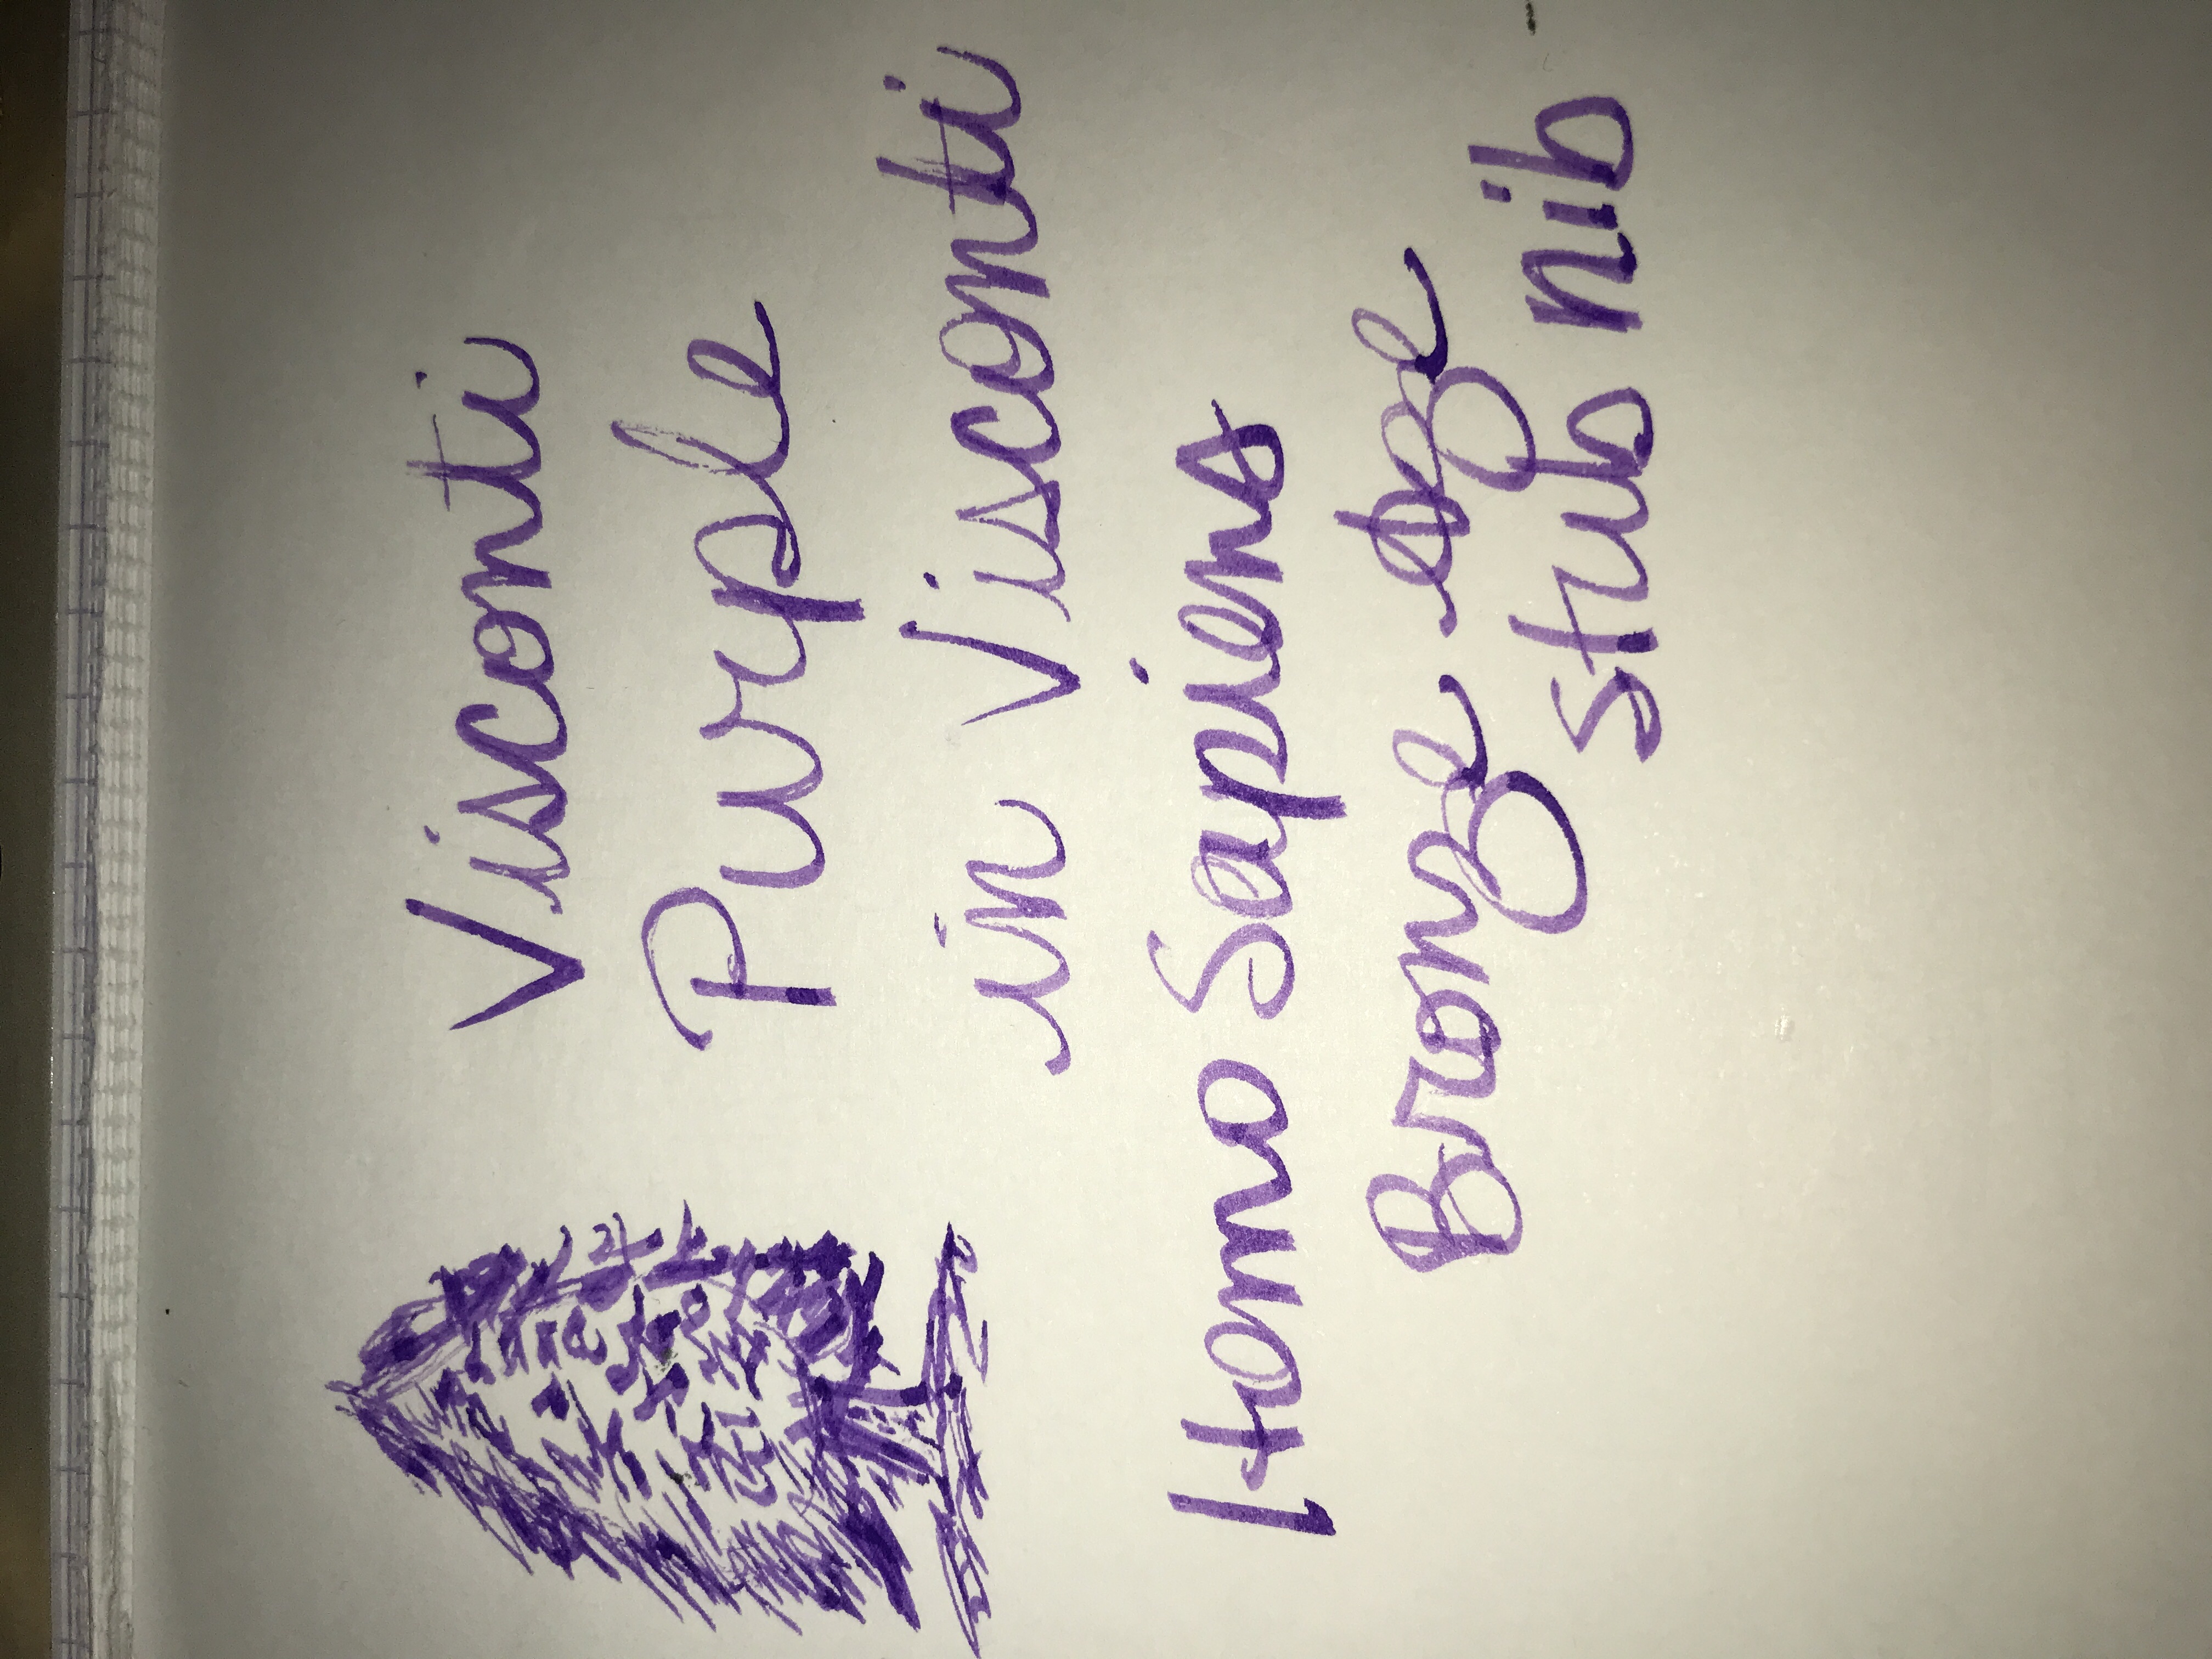 Visconti
Purple
in Visconti
Homo Sapiens
Bronze age
stub nib